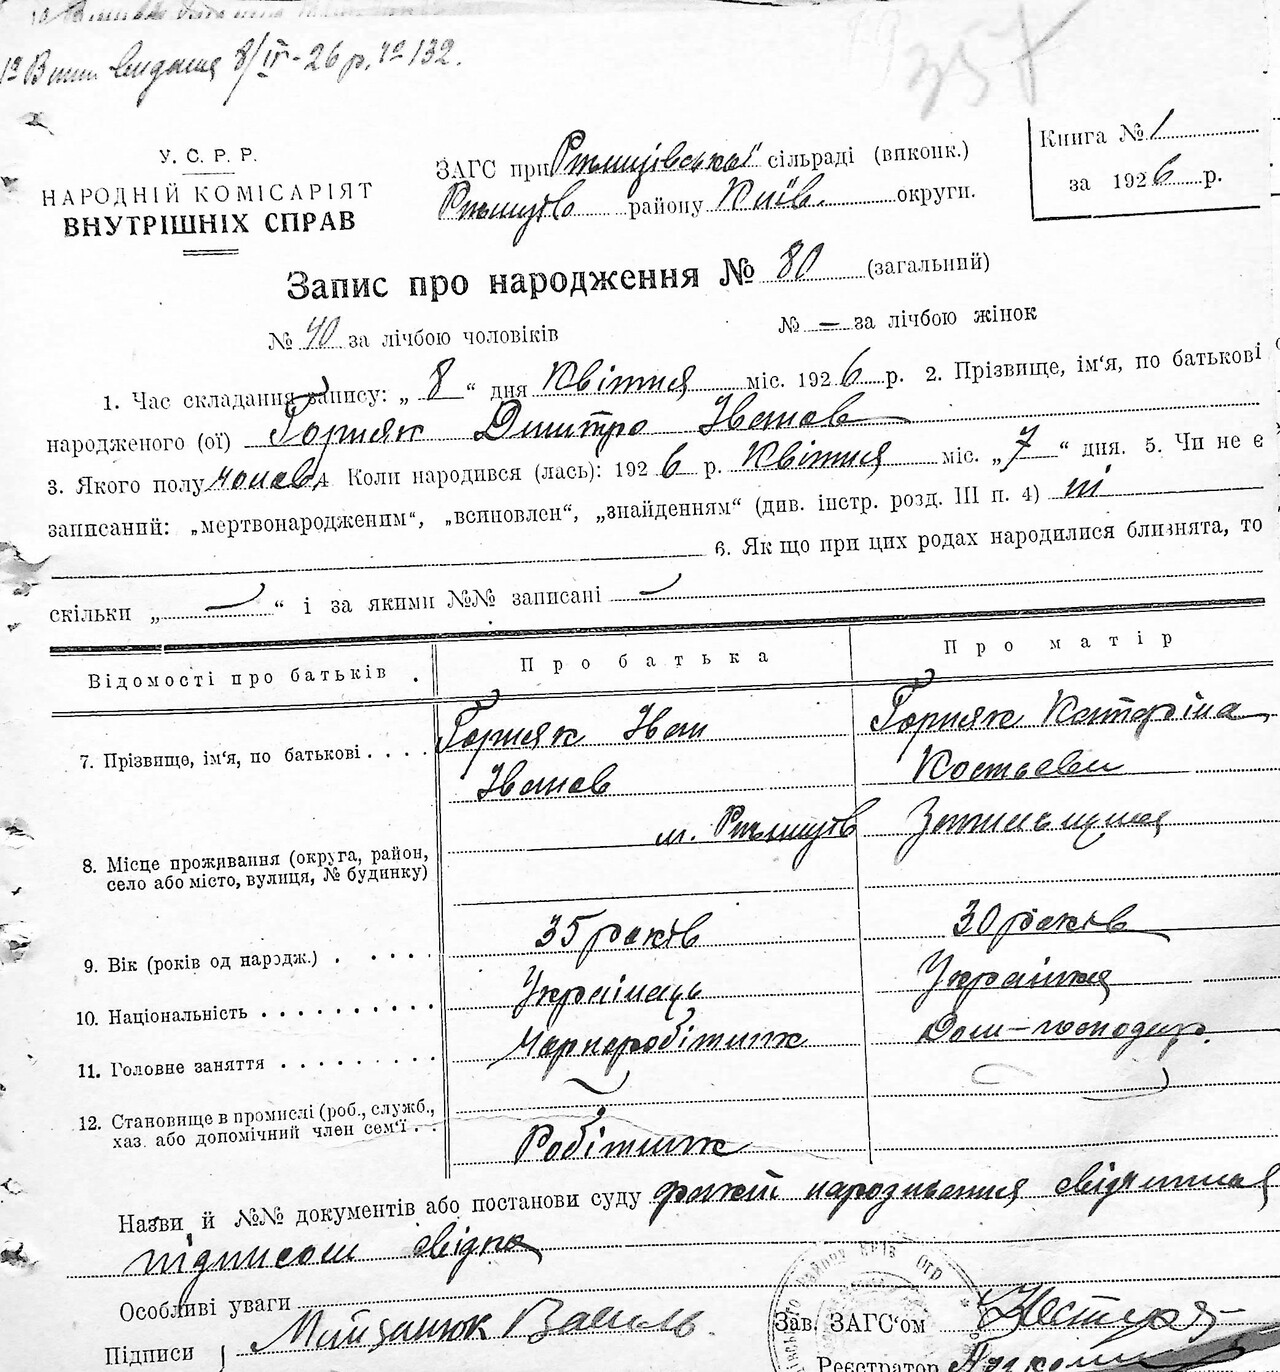 Випис видания 8/IV-26 р. № 132.
357
У. С. Р. Р.
НАРОДНІЙ КОМІСАРІЯТ
ВНУТРІШНІХ СПРАВ
ЗАГС при Ржищівської сільраді (виконк.)
Ржищів району Київ. округи.
Книга № 1
за 1926 р.
Запис про народження № 80 (загальний)
№ 40 за лічбою чоловіків
№ — за лічбою жінок
1. Час складання запису: „ 8 “ дня Квітня міс. 1926 р. 2. Прізвище, ім'я, по батькові
народженого (ої) Горняк Дмитро Іванов
3. Якого полу чолов. 4. Коли народився (лась): 1926 р. Квітня міс. „ 7 “ дня. 5. Чи не є
записаний: „мертвонародженим“, „всиновлен“, „знайденням“ (див. інстр. розд. III п. 4) ні
6. Як що при цих родах народилися близнята, то
скільки „ — “ і за якими №№ записані —
Відомості про батьків.
Про батька
Про матір
7. Прізвище, ім'я, по батькові . . . .
Горняк Іван
Іванов
Горняк Катеріна
8. Місце проживання (округа, район,
село або місто, вулиця, № будинку)
м. Ржищів
9. Вік (років од нардж.) . . . . .
35 років
30 років
10. Національність . . . . . . . . . .
Українець
Українка
11. Головне заняття . . . . . . . .
Чорноробітник
Дом-господар.
12. Становище в промислі (роб., служб.,
хаз. або допомічний член сем'ї . .
Робітник
Назви й №№ документів або постанови суду факт народження свідчиния
підписом свідка
Особливі уваги
Підписи
Василь
Зав. ЗАГС'ом
Реєстратор